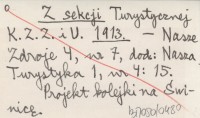 Z sekcji Turystycznej
K. Z. Z. i U. 1913. — Nasze
Zdroje 4, nr 7, dod: Nasza
Turystyka 1, nr 4: 15.
Projekt kolejki na Świ-
nicę.